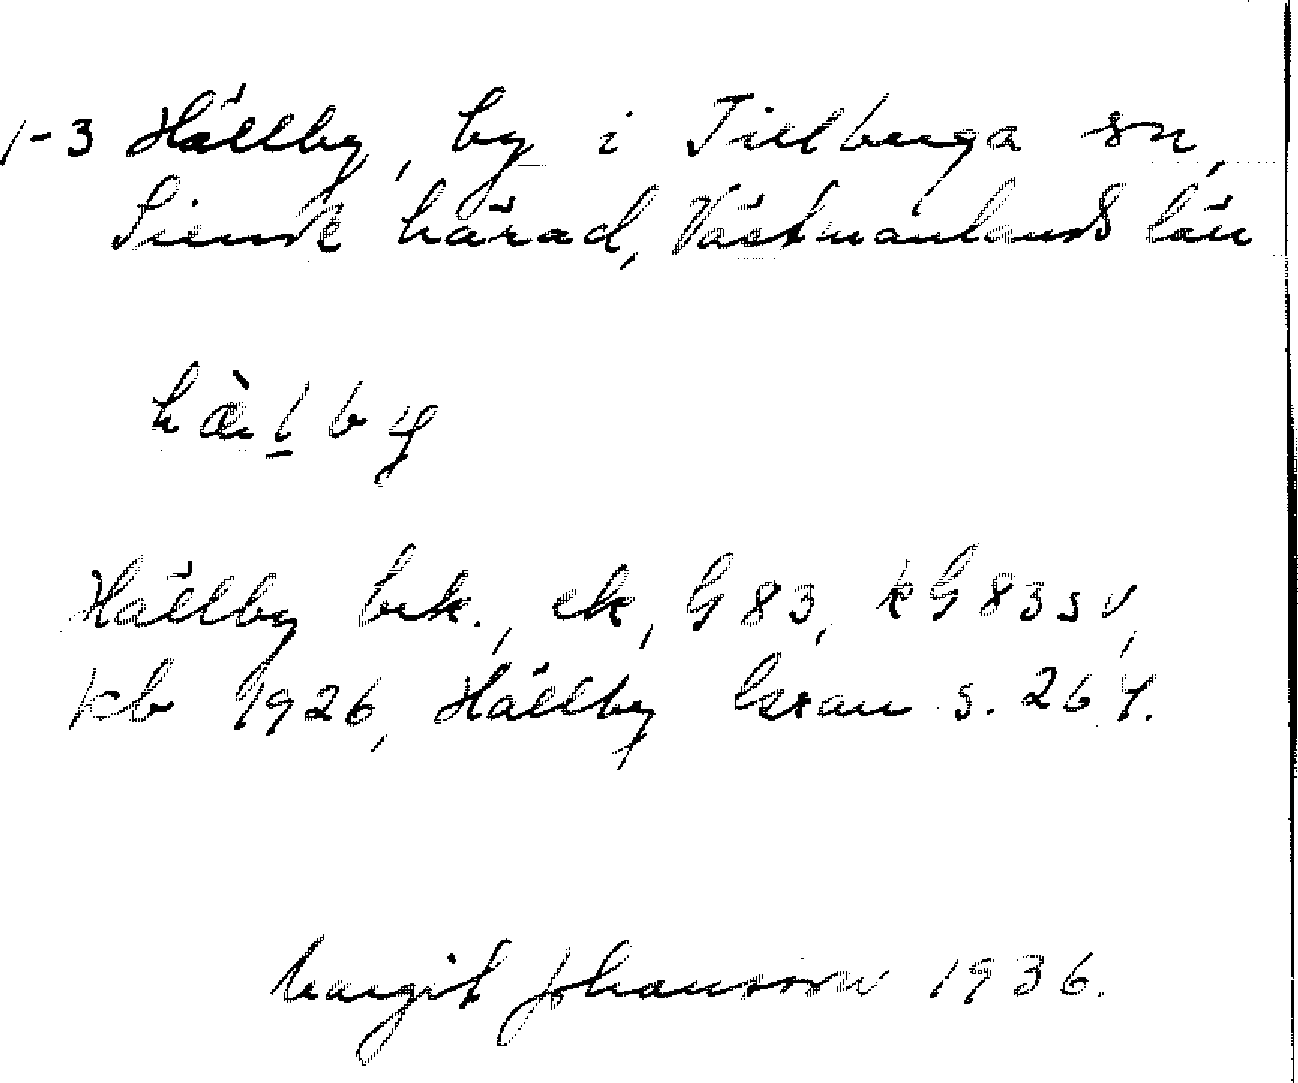 1-3 Hällby, by i Tillberga sn,
Siende härad, Västmanlands län
hæ̀lby
Hällby brk., ek, G 83, kG 83 sv,
kb 1926, Hällby Gran s. 264.
Margit Johansson 1936.